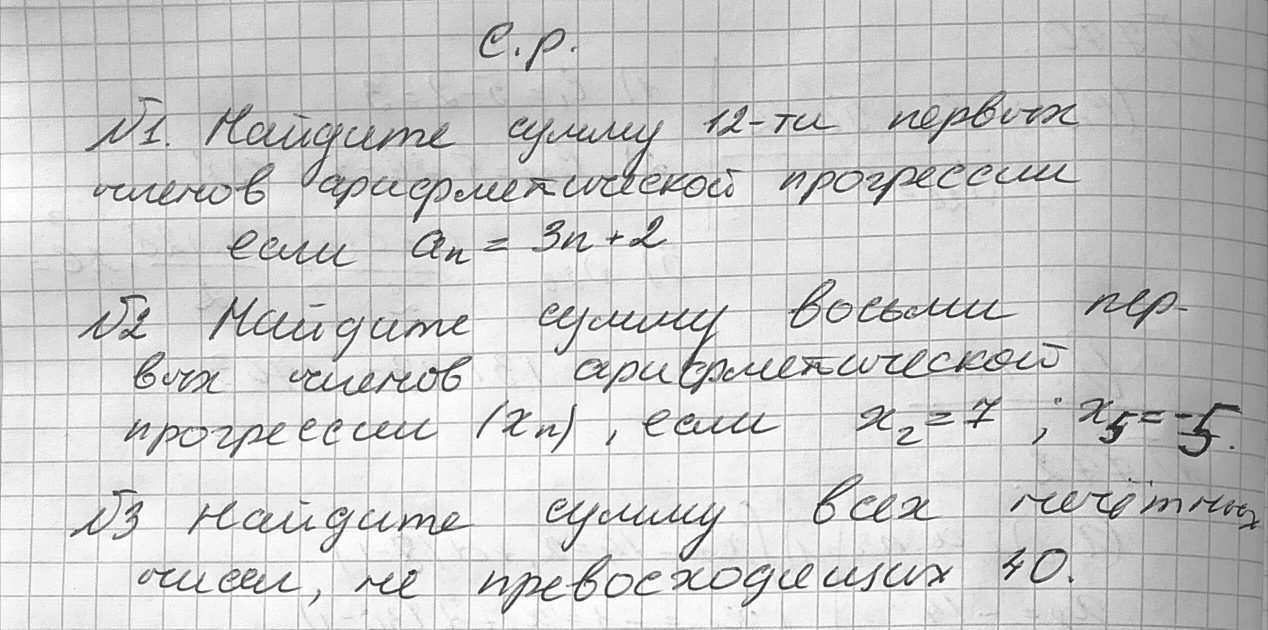 С.р.
№1. Найдите сумму 12-ти первых
членов арифметической прогрессии
если aₙ = 3n + 2
№2 Найдите сумму восьми пер-
вых членов арифметической
прогрессии (xₙ), если x₂ = 7 ; x₅ = -5.
№3 Найдите сумму всех нечётных
чисел, не превосходящих 40.